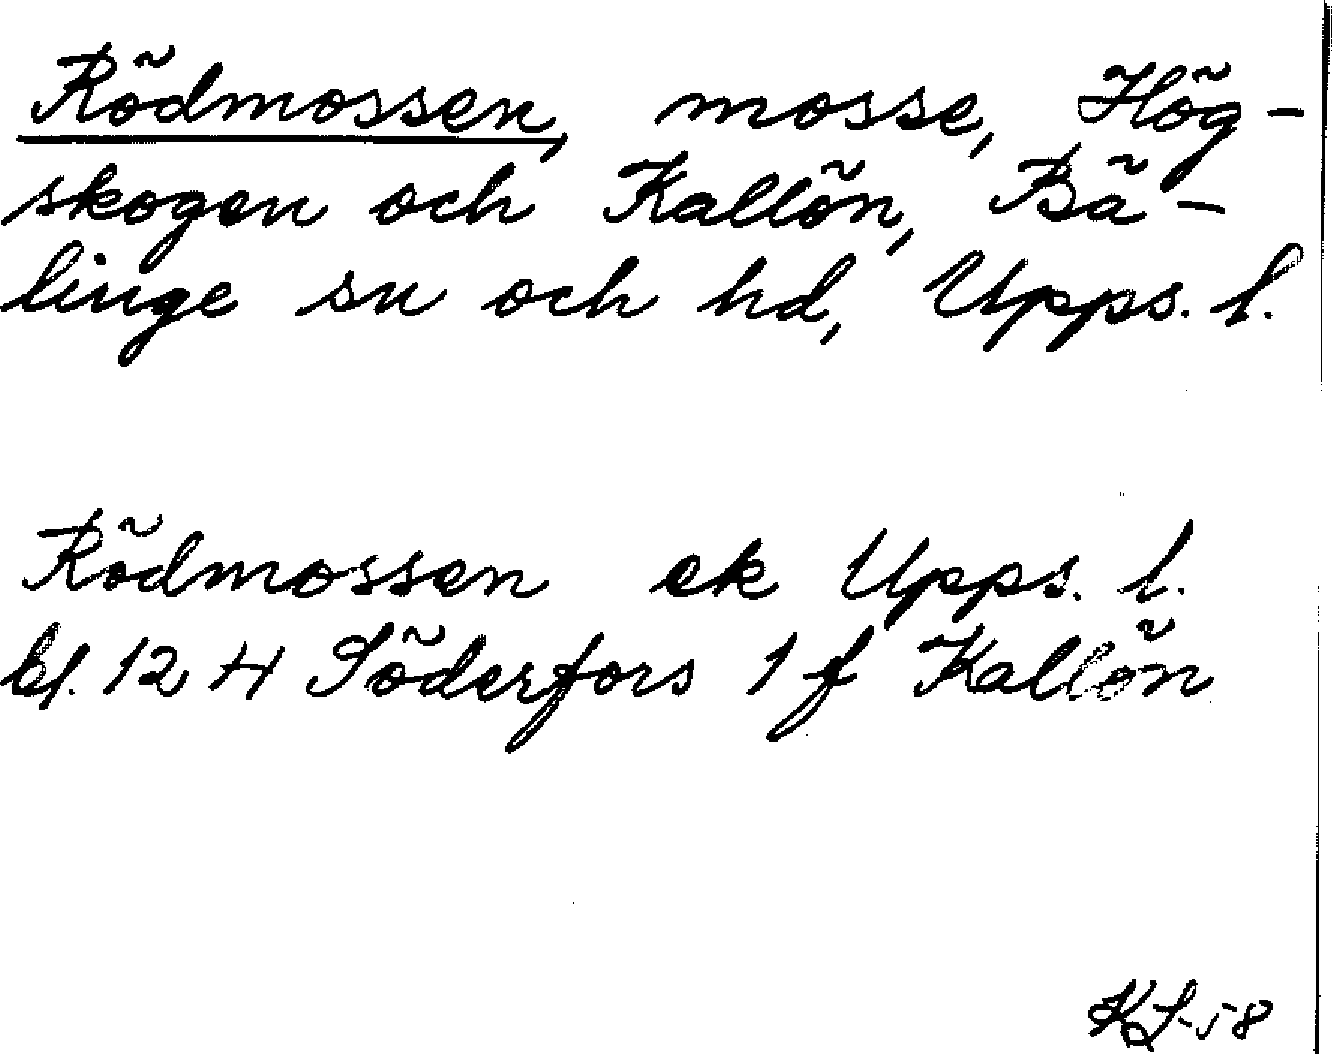 Rödmossen, mosse, Hög-
skogen och Kallön, Bä-
linge sn och hd, Upps. l.
Rödmossen ek Upps. l.
bl. 12 H Söderfors 1 f Kallön
KL-58